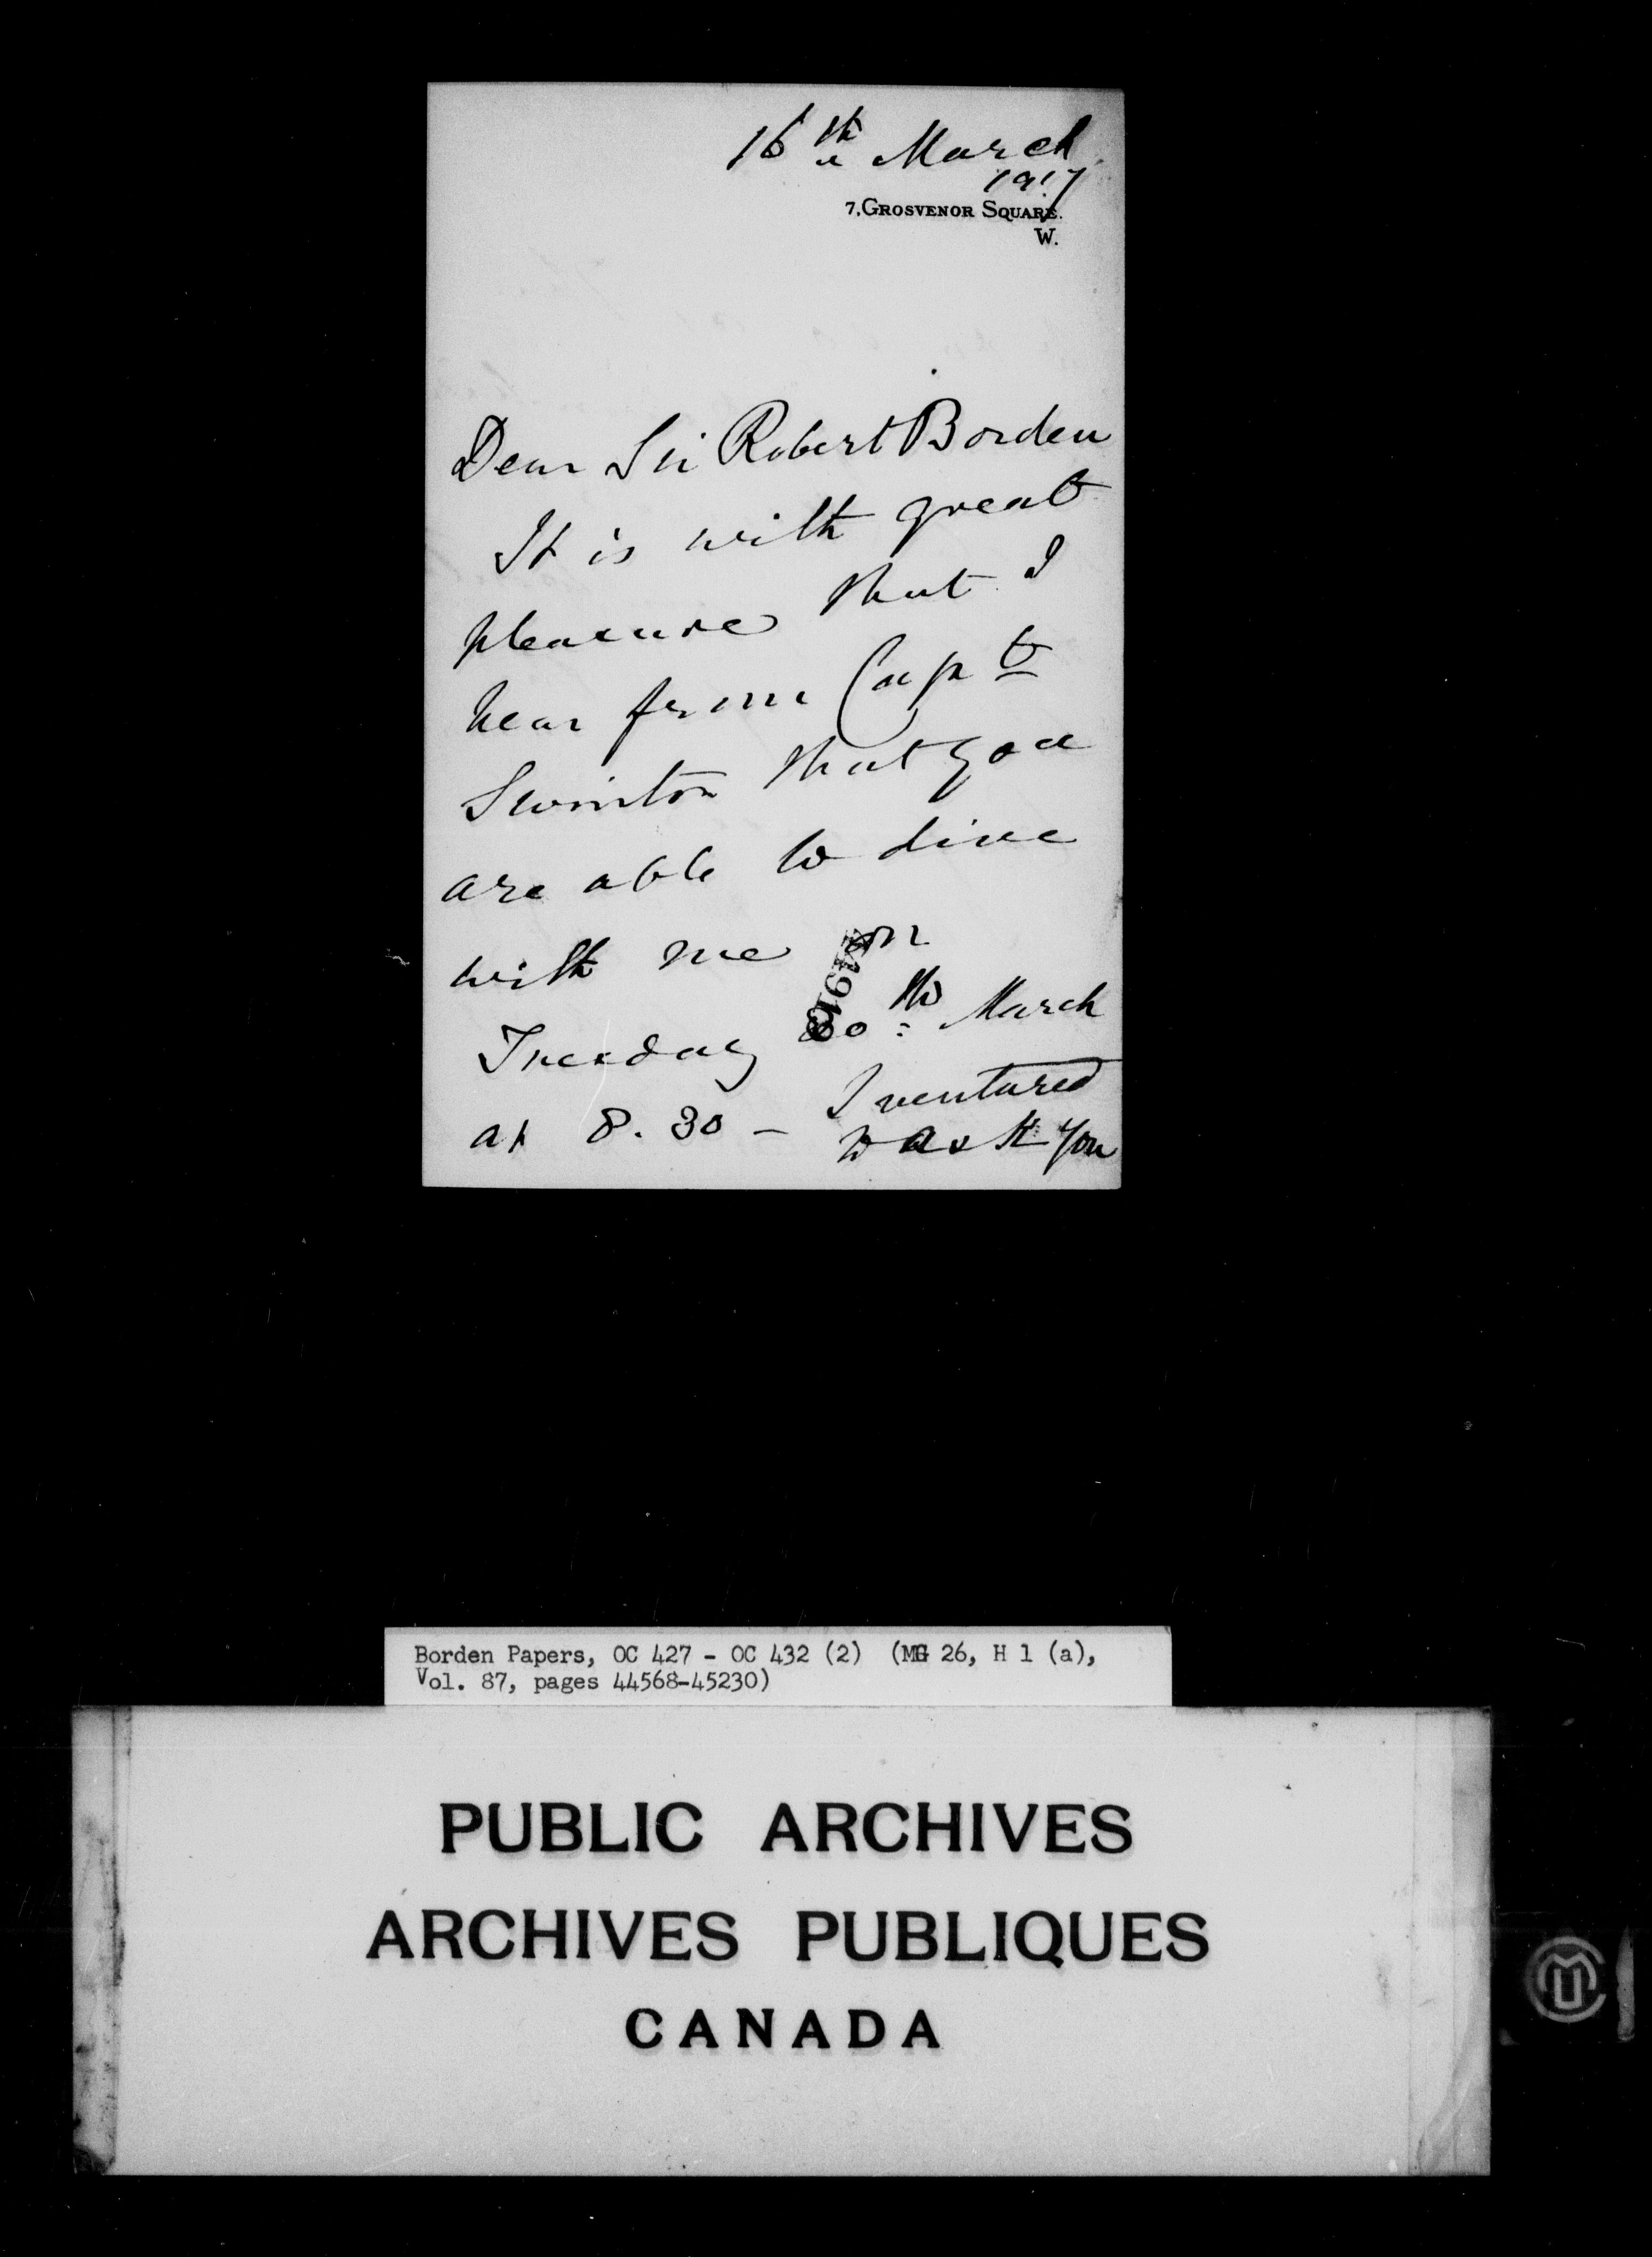 16th March
1917
7, GROSVENOR SQUARE.
W.
Dear Sir Robert Borden
It is with great
pleasure that I
hear from Capt
Swinton that you
are able to dine
with me on
Tuesday 20th March
at 8.30 – I ventured
to ask you
Borden Papers, OC 427 - OC 432 (2) (MG 26, H 1 (a),
Vol. 87, pages 44568-45230)
PUBLIC ARCHIVES
ARCHIVES PUBLIQUES
CANADA